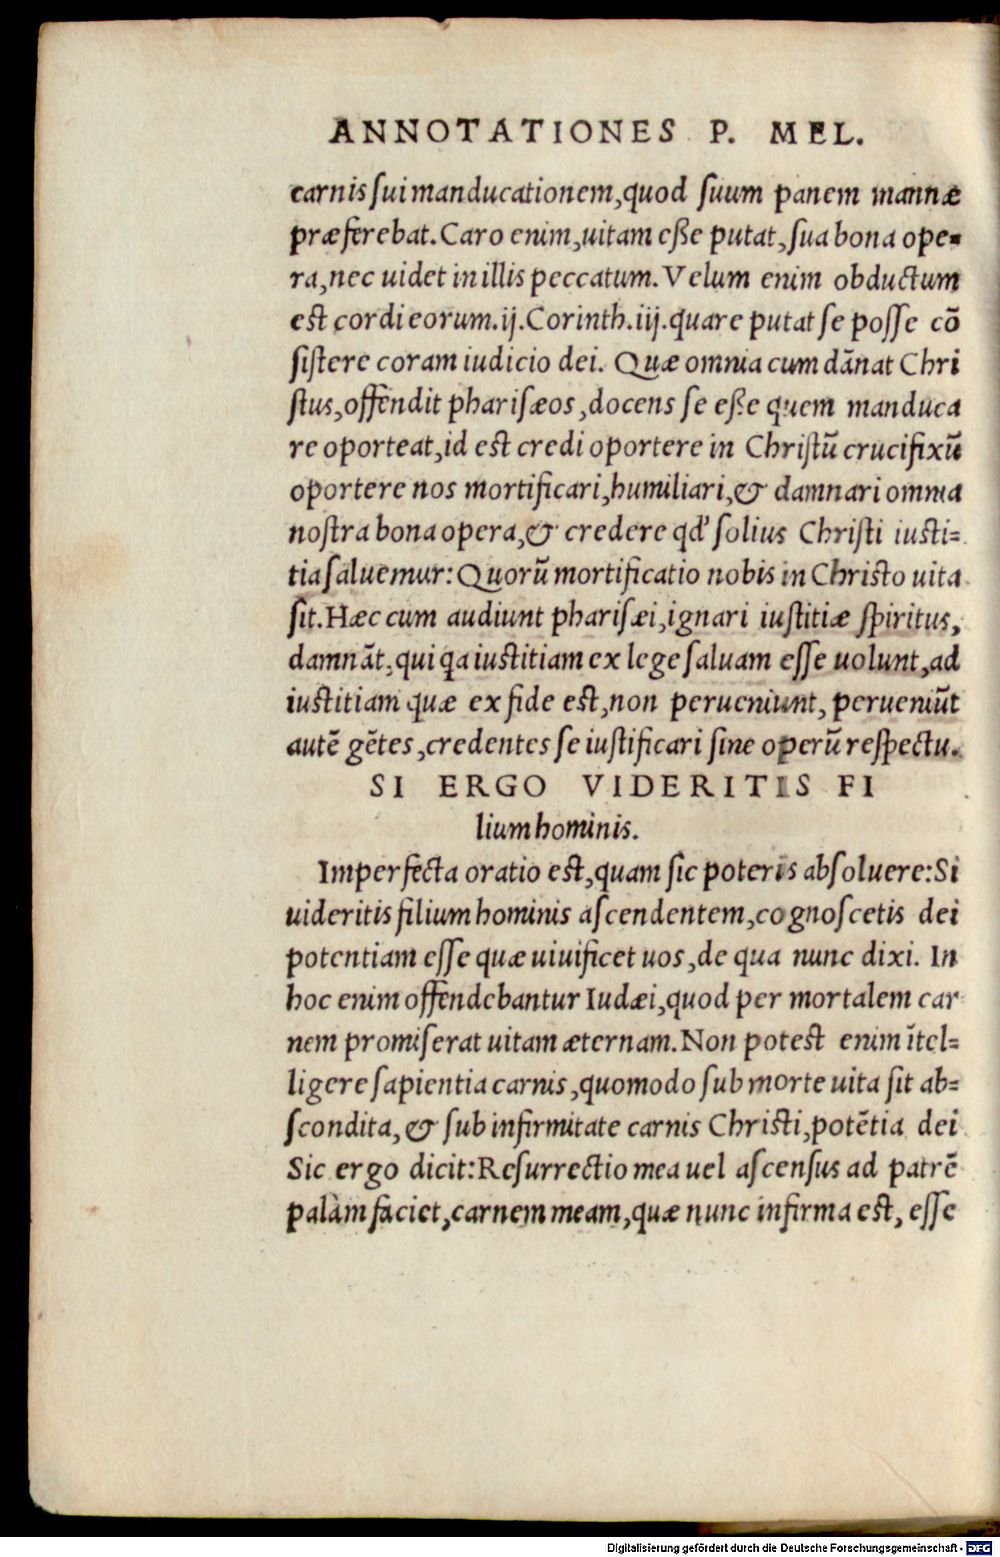 ANNOTATIONES P. MEL.
carnis sui manducationem, quod suum panem mannæ
præferebat. Caro enim, uitam eße putat, sua bona ope-
ra, nec uidet in illis peccatum. Velum enim obductum
est cordi eorum. ij. Corinth. iij. quare putat se posse cõ
sistere coram iudicio dei. Quæ omnia cum dãnat Chri
stus, offendit pharisæos, docens se eße quem manduca
re oporteat, id est credi oportere in Christũ crucifixũ
oportere nos mortificari, humiliari, & damnari omnia
nostra bona opera, & credere qđ solius Christi iusti=
tia saluemur: Quorũ mortificatio nobis in Christo uita
sit. Hæc cum audiunt pharisæi, ignari iustitiæ spiritus,
damnãt, qui qa iustitiam ex lege saluam esse uolunt, ad
iustitiam quæ ex fide est, non perueniunt, perueniũt
autẽ gẽtes, credentes se iustificari sine operũ respectu.
SI ERGO VIDERITIS FI
lium hominis.
Imperfecta oratio est, quam sic poteris absoluere: Si
uideritis filium hominis ascendentem, cognoscetis dei
potentiam esse quæ uiuificet uos, de qua nunc dixi. In
hoc enim offendebantur Iudæi, quod per mortalem car
nem promiserat uitam æternam. Non potest enim ĩtel=
ligere sapientia carnis, quomodo sub morte uita sit ab=
scondita, & sub infirmitate carnis Christi, potẽtia dei
Sic ergo dicit: Resurrectio mea uel ascensus ad patrẽ
palàm faciet, carnem meam, quæ nunc infirma est, esse
Digitalisierung gefördert durch die Deutsche Forschungsgemeinschaft - DFG